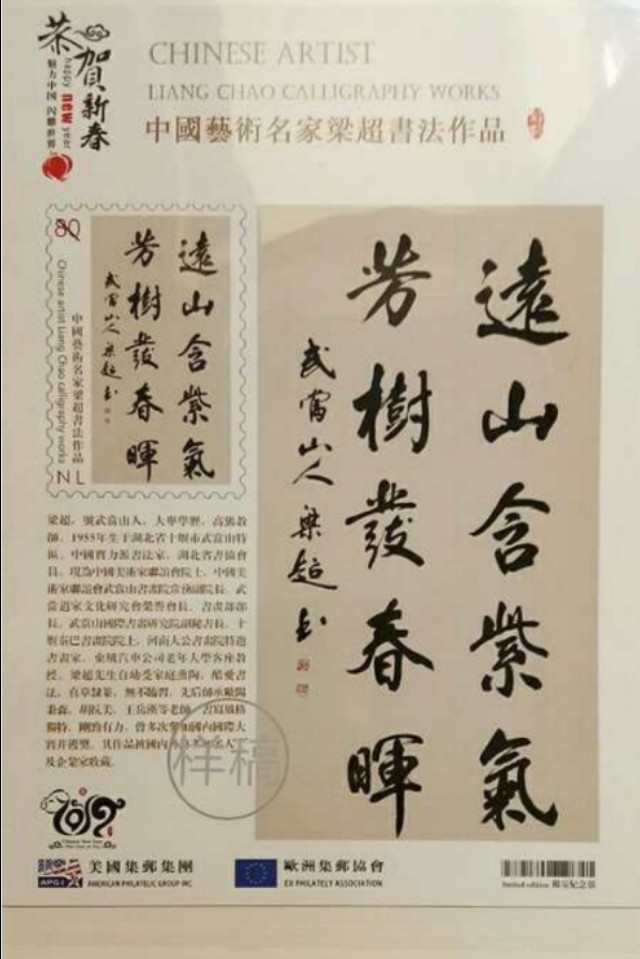 恭賀新春
happy new year
魅力中国 闪耀世界
CHINESE ARTIST
LIANG CHAO CALLIGRAPHY WORKS
中國藝術名家梁超書法作品
遠山含紫氣
芳樹發春暉
武當山人梁超書
中國藝術名家梁超書法作品
Chinese artist Liang Chao calligraphy works
NL
遠山含紫氣
芳樹發春暉
武當山人 梁超書
梁超，號武當山人，大專學歷，高級教
師。1955年生于湖北省十堰市武當山特
區。中國實力派書法家，湖北省書協會
員。現為中國美術家聯誼會院士，中國美
術家聯誼會武當山書畫院常務副院長，武
當道家文化研究會榮譽會長、書畫部部
長，武當山國際書畫研究院副秘書長，十
堰秦巴書畫院院士，河南大公書畫院特邀
書畫家，東風汽車公司老年大學客座教
授。梁超先生自幼受家庭熏陶，酷愛書
法，真草隸篆，無不臨習，先后師承歐陽
秉森、胡阮美、王岳漢等老師，書寫風格
獨特，剛勁有力。曾多次參加國內國際大
賽并獲獎，其作品被國內
及企業家收藏。
样稿
2019
APGI
美國集郵集團
AMERICAN PHILATELIC GROUP INC
歐洲集郵協會
EU PHILATELY ASSOCIATION
limited edition 限量紀念張